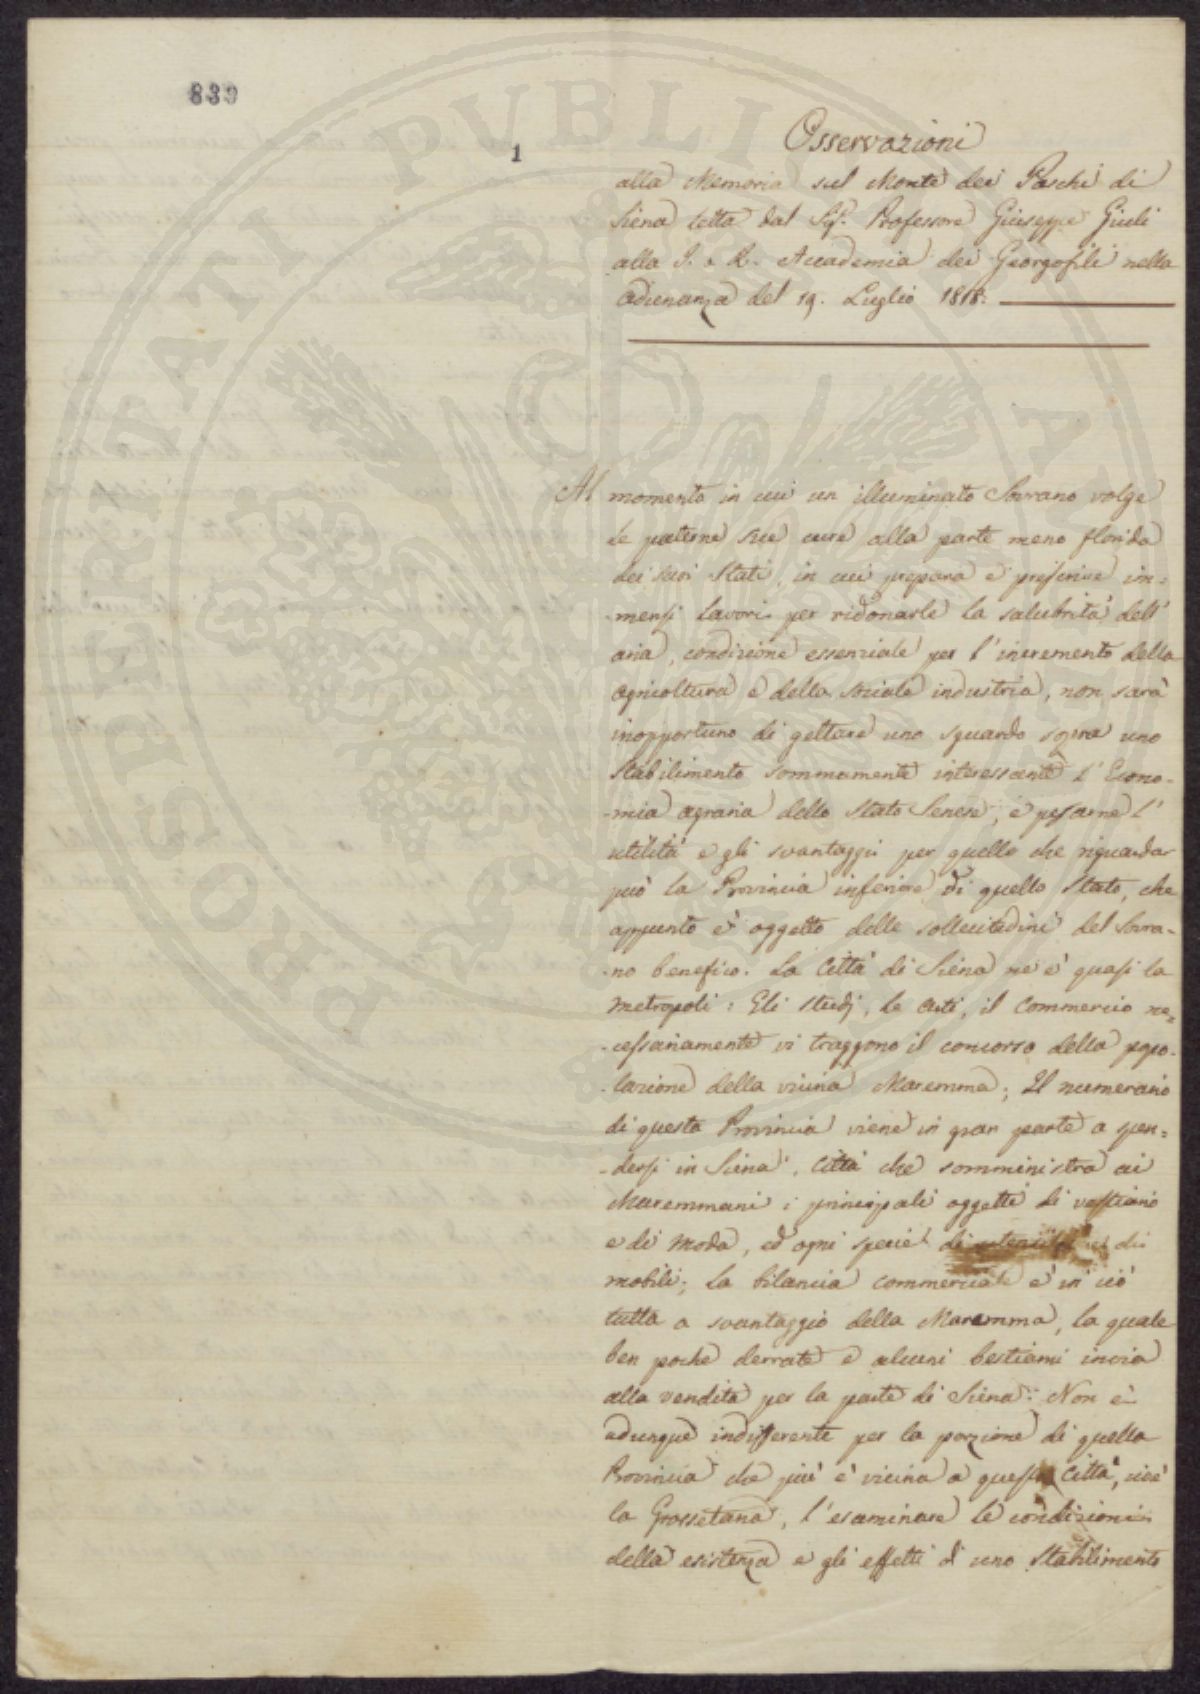 839
1
Osservazioni
alla Memoria sul Monte dei Paschi di
Siena letta dal Sig.r Professore Giuseppe Giuli
alla I. e R. Accademia dei Georgofili nella
adunanza del 19. Luglio 1818.
Al momento in cui un illuminato Sovrano volge
le paterne sue cure alla parte meno florida
dei suoi Stati, in cui prepara e prescrive im=
=mensi lavori per ridonarle la salubrità dell'
aria, condizione essenziale per l'incremento della
agricoltura e della sociale industria, non sarà
inopportuno di gettare uno sguardo sopra uno
Stabilimento sommamente interessante l'Econo=
=mia agraria dello Stato Senese, e pesarne l'
utilità e gli svantaggi per quello che riguardar
può la Provincia inferiore di quello Stato, che
appunto è oggetto delle sollecitudini del Sovra=
=no benefico. La Città di Siena ne è quasi la
Metropoli: Gli Studj, le Arti, il Commercio ne=
=cessariamente vi traggono il concorso della popo=
=lazione della vicina Maremma; Il numerario
di questa Provincia viene in gran parte a spen=
=dersi in Siena, Città che somministra ai
Maremmani i principali oggetti di vestiario
e di Moda, ed ogni specie di utensili e di
mobili; La bilancia commerciale è in ciò
tutta a svantaggio della Maremma, la quale
ben poche derrate e alcuni bestiami invia
alla vendita per la parte di Siena: Non è
adunque indifferente per la porzione di quella
Provincia che più è vicina a questa Città, cioè
la Grossetana, l'esaminare le condizioni
della esistenza e gli effetti d'uno Stabilimento
PROSPERITATI PUBLI AU